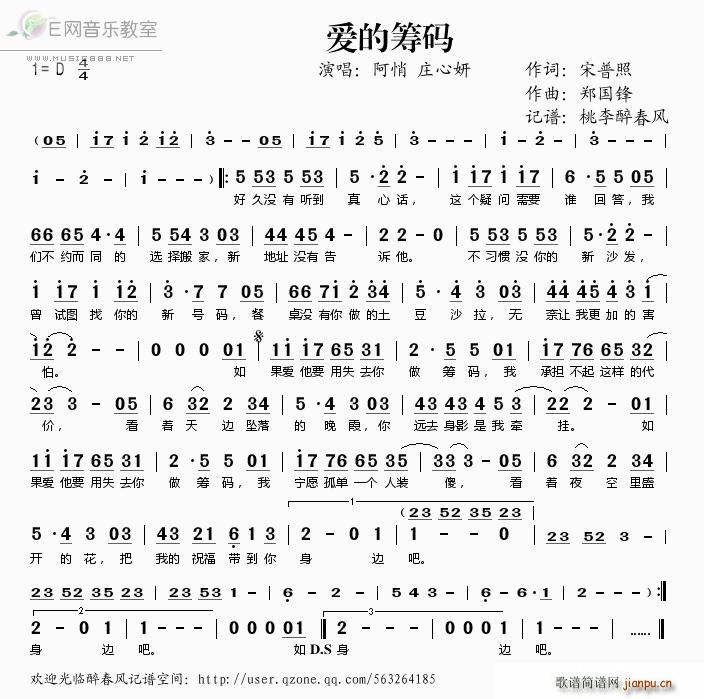 E网音乐教室
WWW.MUSIC888.NET
爱的筹码
1=D 4/4 演唱：阿悄 庄心妍 作词：宋普照
作曲：郑国锋
记谱：桃李醉春风
(05 | i7 i2 i2 | 3 - 05 | i7 i2 i2 | 3 - - 23 |
i - 2 - | i - - ) ‖: 5 53 5 53 | 5 · 2 2 - | i i7 i i7 | 6 · 5 5 05 |
好久没有听到 真心话， 这个疑问需要 谁回答，我
66 65 4 · 4 | 5 54 3 03 | 44 45 4 - | 2 - - 0 | 5 53 5 53 | 5 · 2 2 - |
们不约而同的 选择搬家，新 地址没有告 诉他。 不习惯没你的 新沙发，
i i7 i i2 | 3 · 7 7 05 | i7 i2 2 34 | 5 · 4 3 03 | 44 45 4 3 i |
曾试图找你的 新号码，餐 桌没有你做的土 豆沙拉，无 奈让我更加的害
i2 2 - - | 0 0 0 01 | 1i i7 65 31 | 2 · 5 5 01 | i7 76 65 32 |
怕。 如 果爱他要用失去你 做筹码，我 承担不起这样的代
23 3 - 05 | 6 32 2 34 | 5 · 4 3 03 | 43 43 45 3 1 | 22 - 01 |
价， 看 着天边坠落 的晚霞，你 远去身影是我牵 挂。 如
1i i7 65 31 | 2 · 5 5 01 | i7 76 65 35 | 33 3 - 05 | 6 32 2 34 |
果爱他要用失去你 做筹码，我 宁愿孤单一个人装 傻， 看 着夜空里盛
1
(23 52 35 23
5 · 4 3 03 | 43 21 6 1 3 | 2 - 0 1 | 1 - - 0 | 23 52 3 - |
开的花，把 我的祝福带到你 身 边 吧。
23 52 35 23 | 23 53 1 - | 6 - 2 - | 5 4 3 - | 6 - 6 · 1 | 2 - - - ) :‖
2 3
2 - 0 1 | 1 - - - | 0 0 0 01 ‖ 2 - - 0 | 1 - - - | ...... ‖
身 边 吧。 如 D.S 身 边 吧。
欢迎光临醉春风记谱空间：http://user.qzone.qq.com/563264185
歌谱简谱网
jianpu.cn